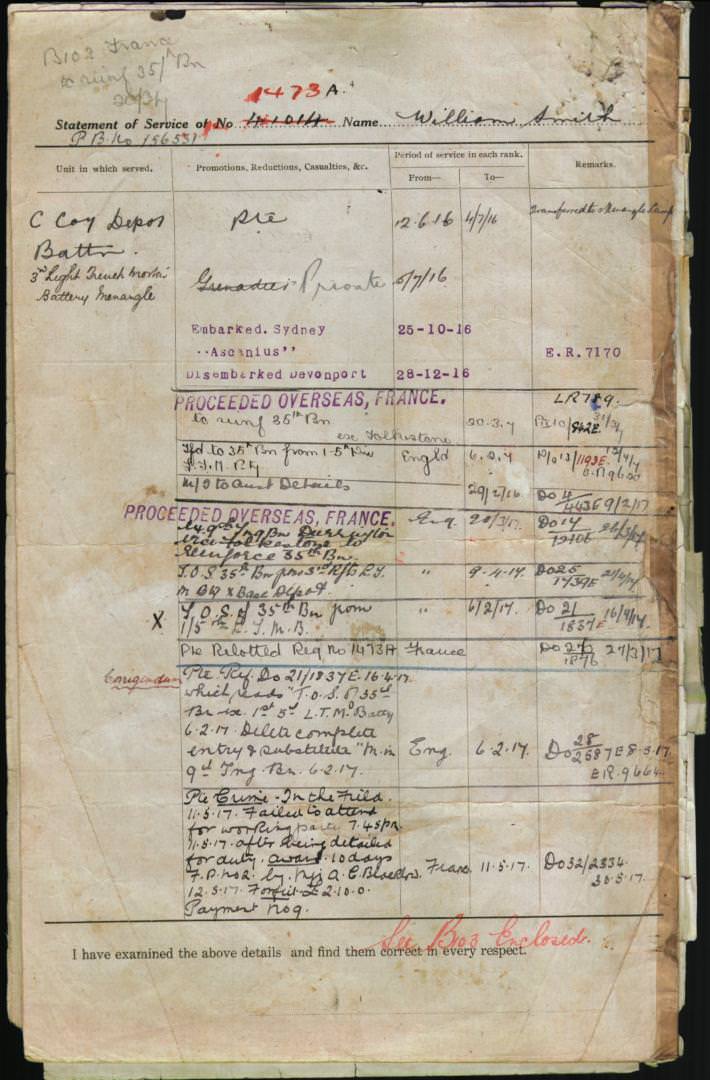 B103 France
to reinf 35th Bn
1473 A.
Statement of Service of No Name William Smith
P.B. No 196531
Unit in which served.
Promotions, Reductions, Casualties, &c.
Period of service in each rank.
From—
To—
Remarks.
C Coy Depot
Battn.
Pte
12.6.16
4/7/16
Transferred to Menangle Camp
3rd Light Trench Mortar
Battery Menangle
Grenadier Private
5/7/16
Embarked. Sydney
25-10-16
"Ascanius"
E.R.7170
Disembarked Devonport
28-12-16
PROCEEDED OVERSEAS, FRANCE.
to reinf 35th Bn
ex Folkestone
20.3.17
LR789.
Tfd to 35th Bn from 1-5th
Engld
6.2.17
1193E
M/O to Aust Details
Do 4/443E 9/2/17
PROCEEDED OVERSEAS, FRANCE.
9th Trng Bn Durrington
via Folkestone to
Reinforce 35th Bn.
Eng.
20/3/17
Do 14
T.O.S. 35th Bn from 3rd Rfts
Base Depot.
"
9.4.17.
Do 25/1739E 21/4/17
X
T.O.S. of 35th Bn from
1/5th L.T.M.B.
"
6/2/17.
Do 21/1837E 16/4/17
Pte Relotted Reg No 1473A
France
27/3/17
Corrigendum
Pte Ref. Do 21/1837E. 16.4.17.
which reads "T.O.S. of 35th
Bn ex. 1st 5th L.T.M. Batty
6.2.17. Delete complete
entry & substitute "M. in
9th Trng. Bn. 6.2.17.
Eng.
6.2.17.
Do 28/2587E 8.5.17.
E.R. 9664
Pte Crime - In the Field.
11.5.17. Failed to attend
for working party 7.45pm.
11.5.17. after being detailed
for duty. award. 10 days
F.P. No 2. by Maj A. C.
12.5.17. Forfeit £2.10.0.
Payment
France
11.5.17.
Do 32/2334
30.5.17.
See B103 Enclosed.
I have examined the above details and find them correct in every respect.